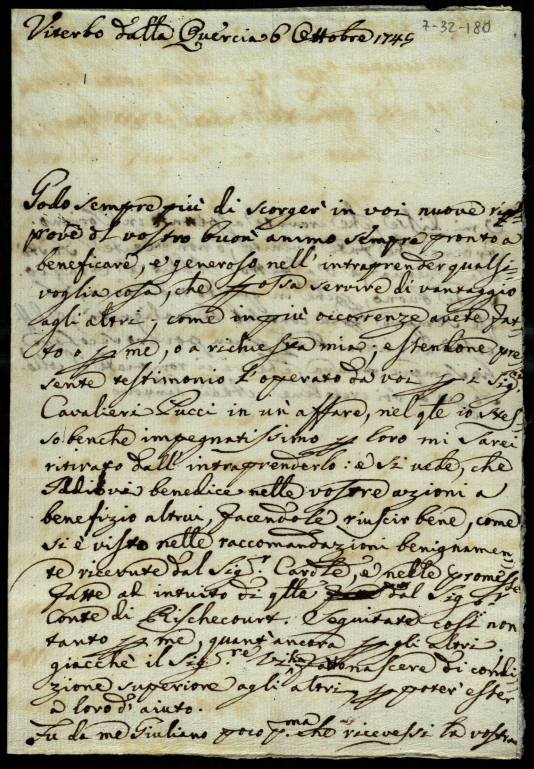 7-32-180
Viterbo dalla Quercia 6 Ottobre 1749
Godo sempre più di scorger in voi nuove ri
prove del vostro buon animo sempre pronto a
beneficare, e generoso nell' intraprender qualsi-
voglia cosa, che possa servire di vantaggio
agli altri; come in più occorrenze avete fat-
to o p me, o a richiesta mia; essendone pre
sente testimonio l'operato da voi p i Sigri
Cavalieri Pucci in un' affare, nel qle io stes-
so benche impegnatissimo p loro mi sarei
ritirato dall' intraprenderlo: e si vede, che
Iddio vi benedice nelle vostre azzioni a
benefizio altrui, facendole riuscir bene, come
si è visto nelle raccomandazioni benignamen-
te ricevute dal Sigr Cardle, e nelle promesse
fatte al intuito di qlle dal Sigr
Conte di Rischecourt. Seguitate così non
tanto p me, quant' ancora p gli altri
giacchè il Sigre vi ha fatto nascere di condi-
zione superiore agli altri p poter esser
a loro d' aiuto.
Fu da me Giuliano poco pma che ricevessi la vostra